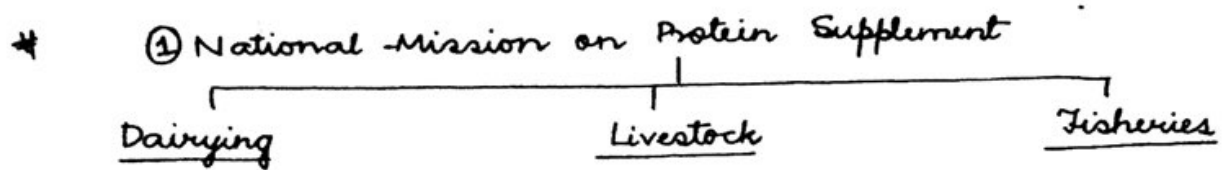 * ① National Mission on Protein Supplement
Dairying Livestock Fisheries